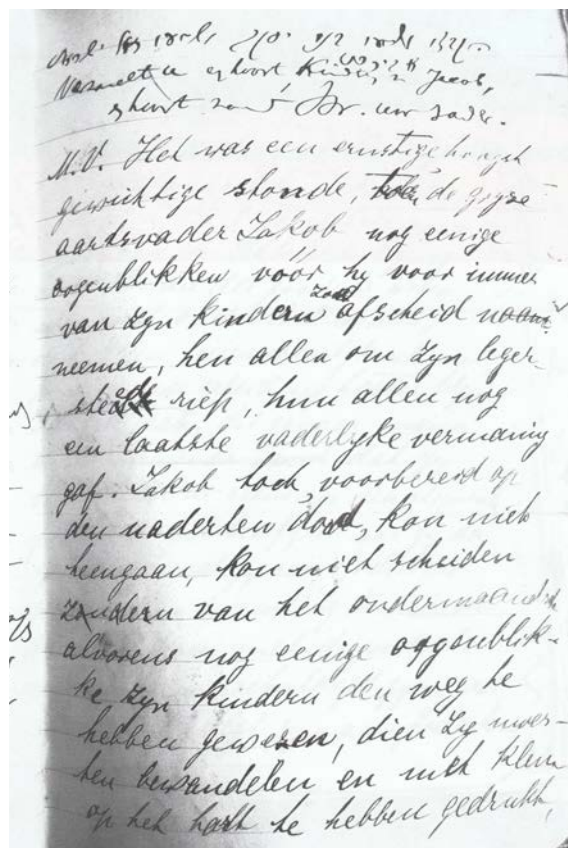 הקבצו ושמעו בני יעקב ושמעו אל ישראל
אביכם
Verzamelt u en hoort Kinderen Jacob,
en hoort naar Isr. uw vader.
M.V. Het was een ernstige hoogst
gewichtige stonde, toen de gryze
aartsvader Jakob nog eenige
oogenblikken vóór hy voor immer
van zyn kinderen zoud afscheid naam
neemen, hen allen om zyn leger-
stede riep, hun allen nog
een laatste vaderlyke vermaning
gaf. Jakob toch, voorbereid op
den naderten dood, kon niet
heengaan, kon niet scheiden
zondern van het ondermaansch
alvorens nog eenige oogenblik-
ke zyn kindern den weg te
hebben gewezen, dien zy moes-
ten bewandelen en met klem
op het hart te hebben gedrukt,